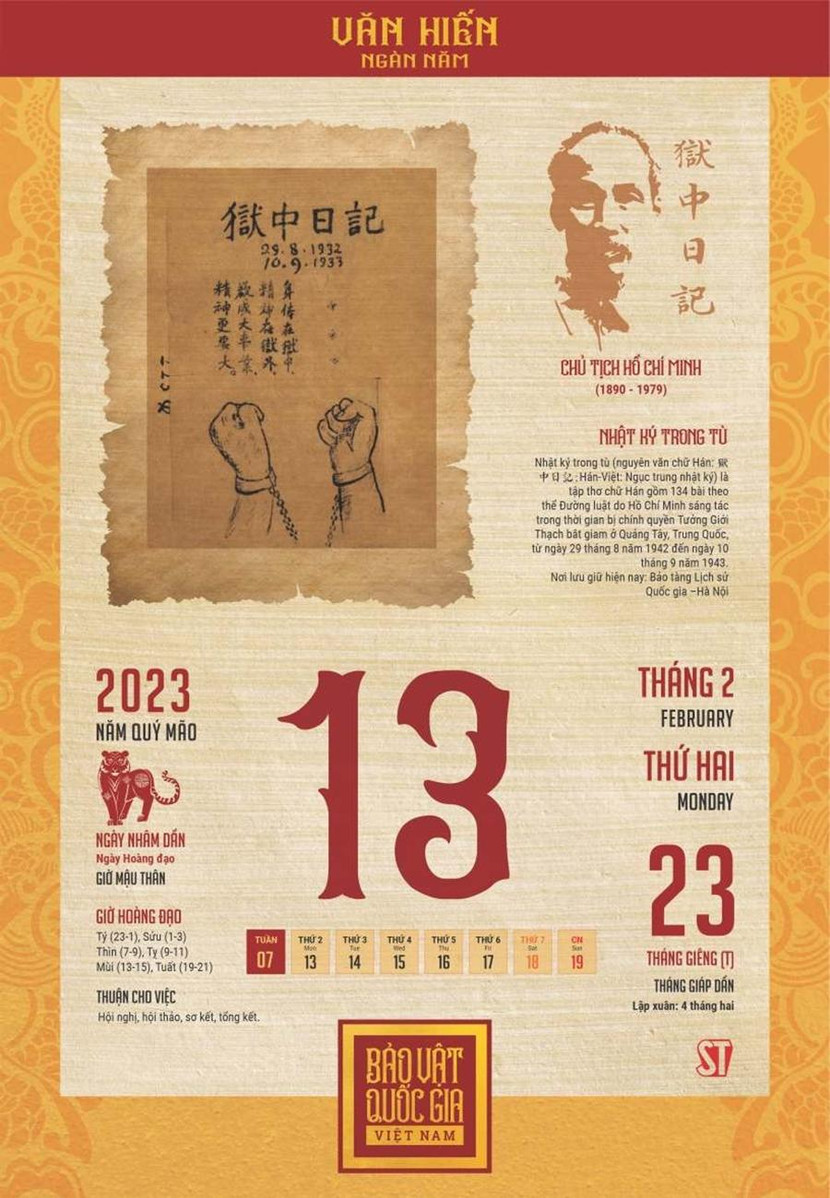 VĂN HIẾN
NGÀN NĂM
獄中日記
29.8.1932
10.9.1933
身体在獄中，
精神在獄外，
欲成大事業，
精神更要大。
獄
中
日
記
CHỦ TỊCH HỒ CHÍ MINH
(1890 - 1979)
NHẬT KÝ TRONG TÙ
Nhật ký trong tù (nguyên văn chữ Hán: 獄
中日记; Hán-Việt: Ngục trung nhật ký) là
tập thơ chữ Hán gồm 134 bài theo
thể Đường luật do Hồ Chí Minh sáng tác
trong thời gian bị chính quyền Tưởng Giới
Thạch bắt giam ở Quảng Tây, Trung Quốc,
từ ngày 29 tháng 8 năm 1942 đến ngày 10
tháng 9 năm 1943.
Nơi lưu giữ hiện nay: Bảo tàng Lịch sử
Quốc gia –Hà Nội
2023
NĂM QUÝ MÃO
NGÀY NHÂM DẦN
Ngày Hoàng đạo
GIỜ MẬU THÂN
GIỜ HOÀNG ĐẠO
Tý (23-1), Sửu (1-3)
Thìn (7-9), Tỵ (9-11)
Mùi (13-15), Tuất (19-21)
THUẬN CHO VIỆC
Hội nghị, hội thảo, sơ kết, tổng kết.
13
THÁNG 2
FEBRUARY
THỨ HAI
MONDAY
23
THÁNG GIÊNG (T)
THÁNG GIÁP DẦN
Lập xuân: 4 tháng hai
TUẦN THỨ 2 THỨ 3 THỨ 4 THỨ 5 THỨ 6 THỨ 7 CN
Mon Tue Wed Thu Fri Sat Sun
07 13 14 15 16 17 18 19
ST
BẢO VẬT
QUỐC GIA
VIỆT NAM